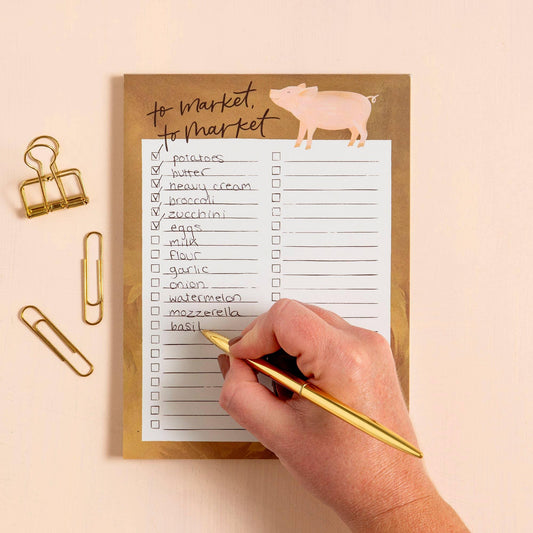 to market,
to market
potatoes
butter
heavy cream
broccoli
zucchini
eggs
milk
flour
garlic
onion
watermelon
mozzerella
basil